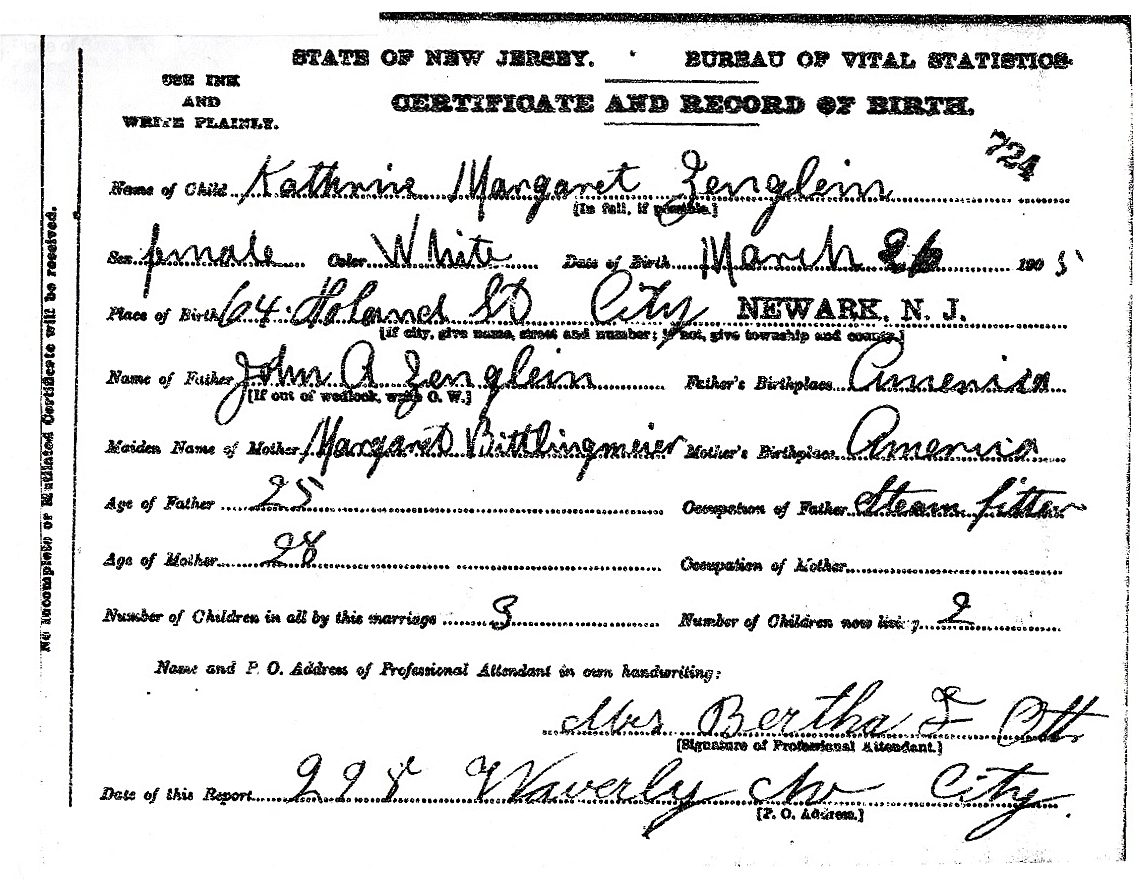 STATE OF NEW JERSEY. BUREAU OF VITAL STATISTICS.
USE INK
AND
WRITE PLAINLY.
CERTIFICATE AND RECORD OF BIRTH.
724
Name of Child Kathrine Margaret Zenglein
[In full, if possible.]
Sex female Color White Date of Birth March 26 1905
Place of Birth 64 Holand St City NEWARK, N. J.
[If city, give name, street and number; if not, give township and county.]
Name of Father John A Zenglein Father's Birthplace America
[If out of wedlock, write O. W.]
Maiden Name of Mother Margaret Bittlingmeier Mother's Birthplace America
Age of Father 25 Occupation of Father Steam fitter
Age of Mother 28 Occupation of Mother
Number of Children in all by this marriage 3 Number of Children now living 2
Name and P. O. Address of Professional Attendant in own handwriting:
Mrs Bertha F Ott
[Signature of Professional Attendant.]
Date of this Report 228 Waverly Av City
[P. O. Address.]
No Incomplete or Mutilated Certificate will be received.